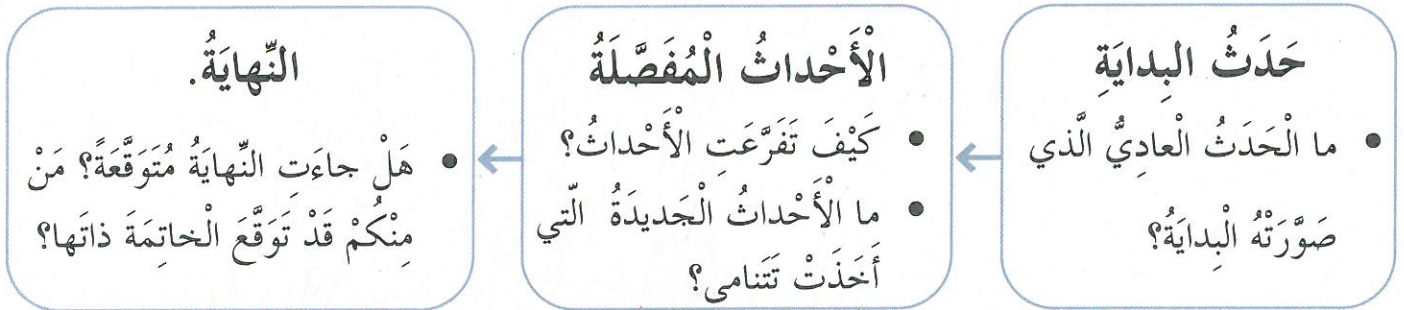 حَدَثُ البِدايَةِ
• ما الْحَدَثُ الْعادِيُّ الَّذي
صَوَّرَتْهُ الْبِدايَةُ؟
الْأَحْداثُ الْمُفَصَّلَةُ
• كَيْفَ تَفَرَّعَتِ الْأَحْداثُ؟
• ما الْأَحْداثُ الْجَديدَةُ الّتي
أَخَذَتْ تَتَنامى؟
النِّهايَةُ.
• هَلْ جاءَتِ النِّهايَةُ مُتَوَقَّعَةً؟ مَنْ
مِنْكُمْ قَدْ تَوَقَّعَ الْخاتِمَةَ ذاتَها؟